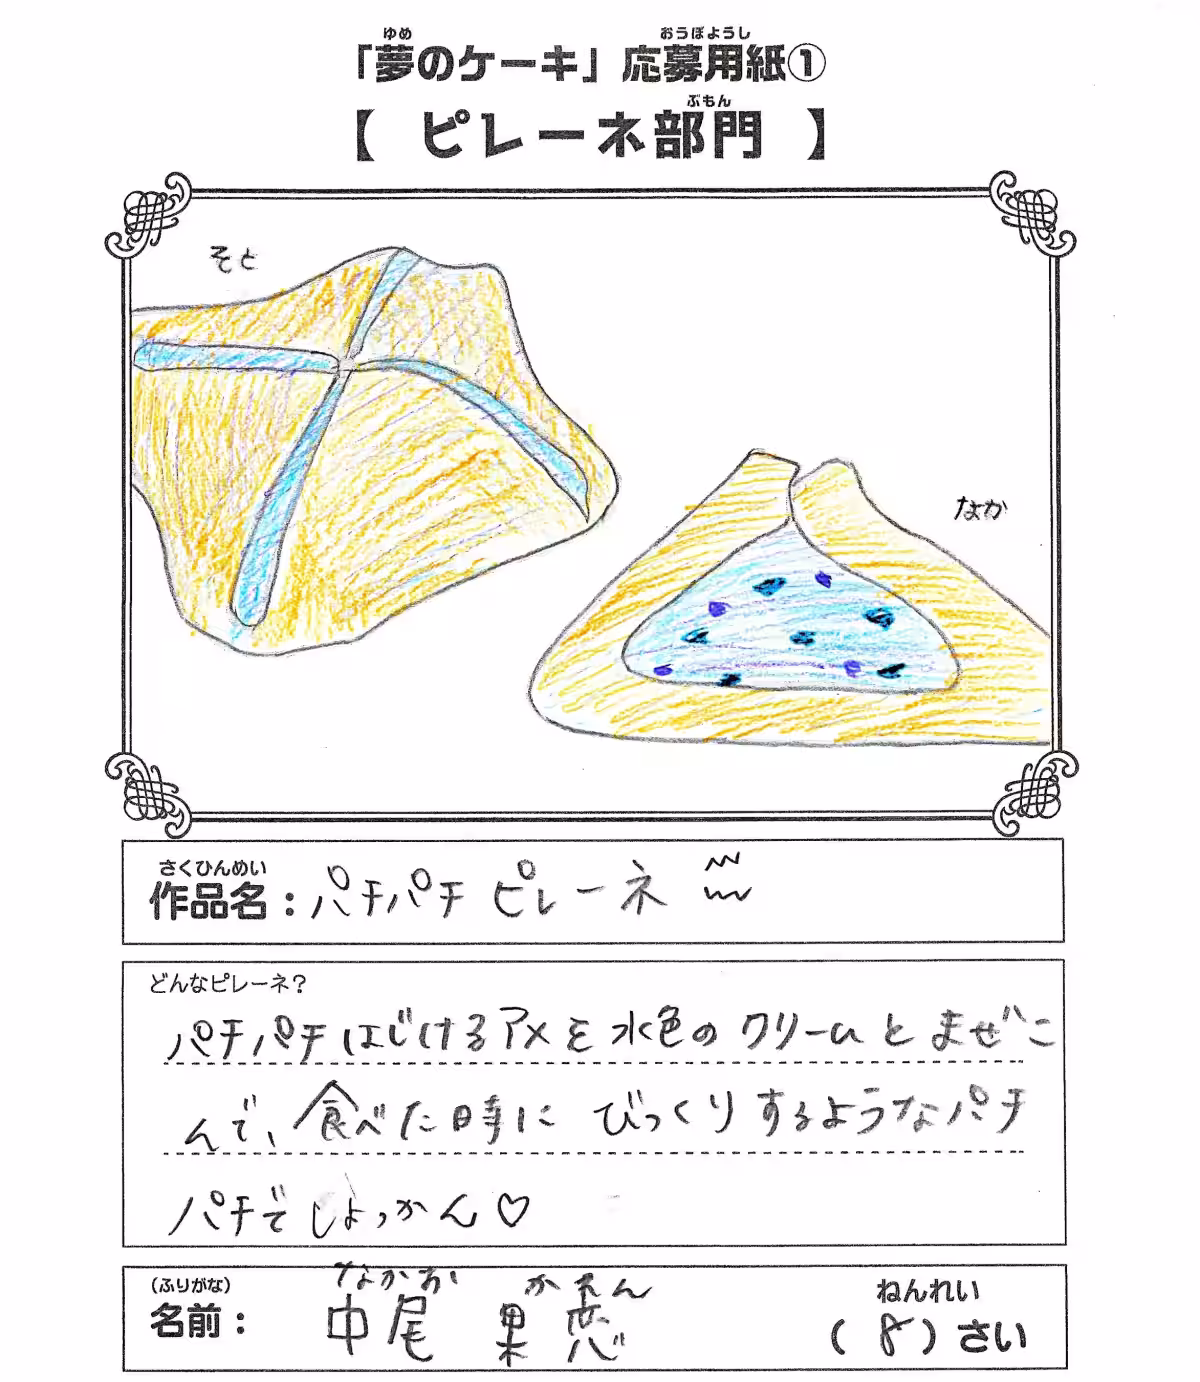 ゆめ おうぼようし
「夢のケーキ」応募用紙①
ぶもん
【 ピレーネ部門 】
そと
なか
さくひんめい
作品名：パチパチ ピレーネ
どんなピレーネ？
パチパチはじけるアメを水色のクリームとまぜこ
んで、食べた時にびっくりするようなパチ
パチでしょっかん♡
(ふりがな) なかお かれん ねんれい
名前： 中尾 果恋 (8) さい